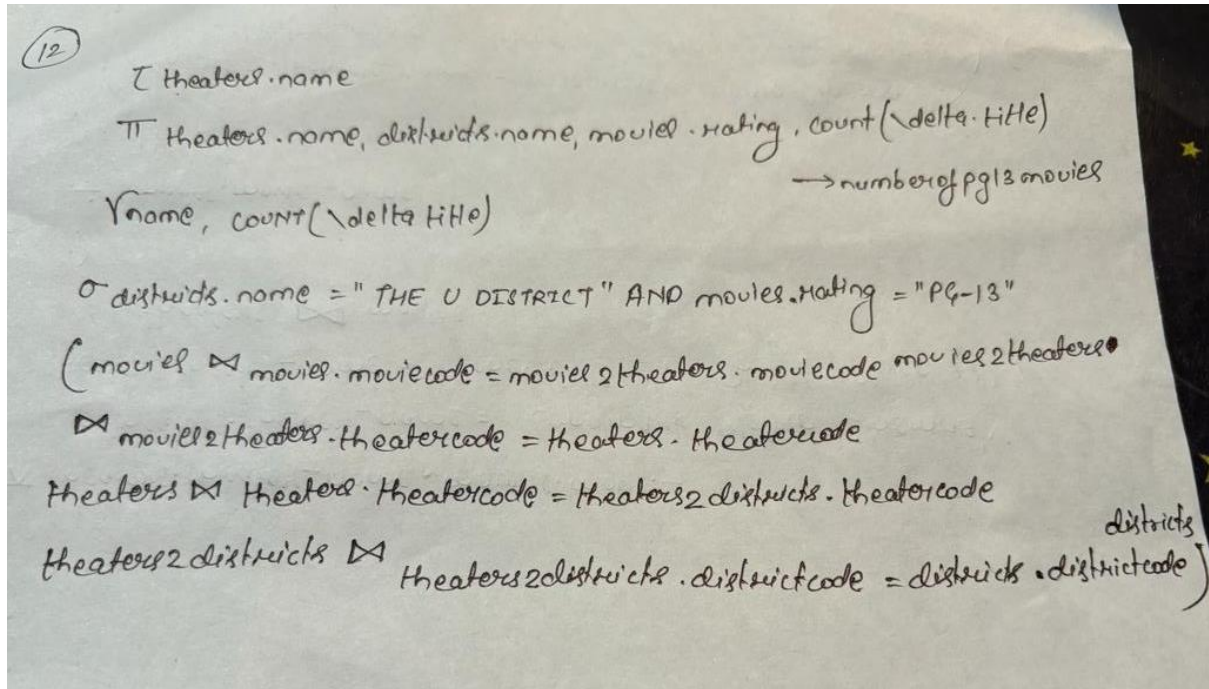 12
τ theaters.name
π theaters.name, districts.name, movies.rating, count(\delta.title)
→ numberofpg13movies
γ name, COUNT(\delta title)
σ districts.name = "THE U DISTRICT" AND movies.rating = "PG-13"
(movies ⋈ movies.moviecode = movies2theaters.moviecode movies2theaters
⋈ movies2theaters.theatercode = theaters.theatercode
theaters ⋈ theaters.theatercode = theaters2districts.theatercode
theaters2districts ⋈ theaters2districts.districtcode = districts.districtcode
districts)